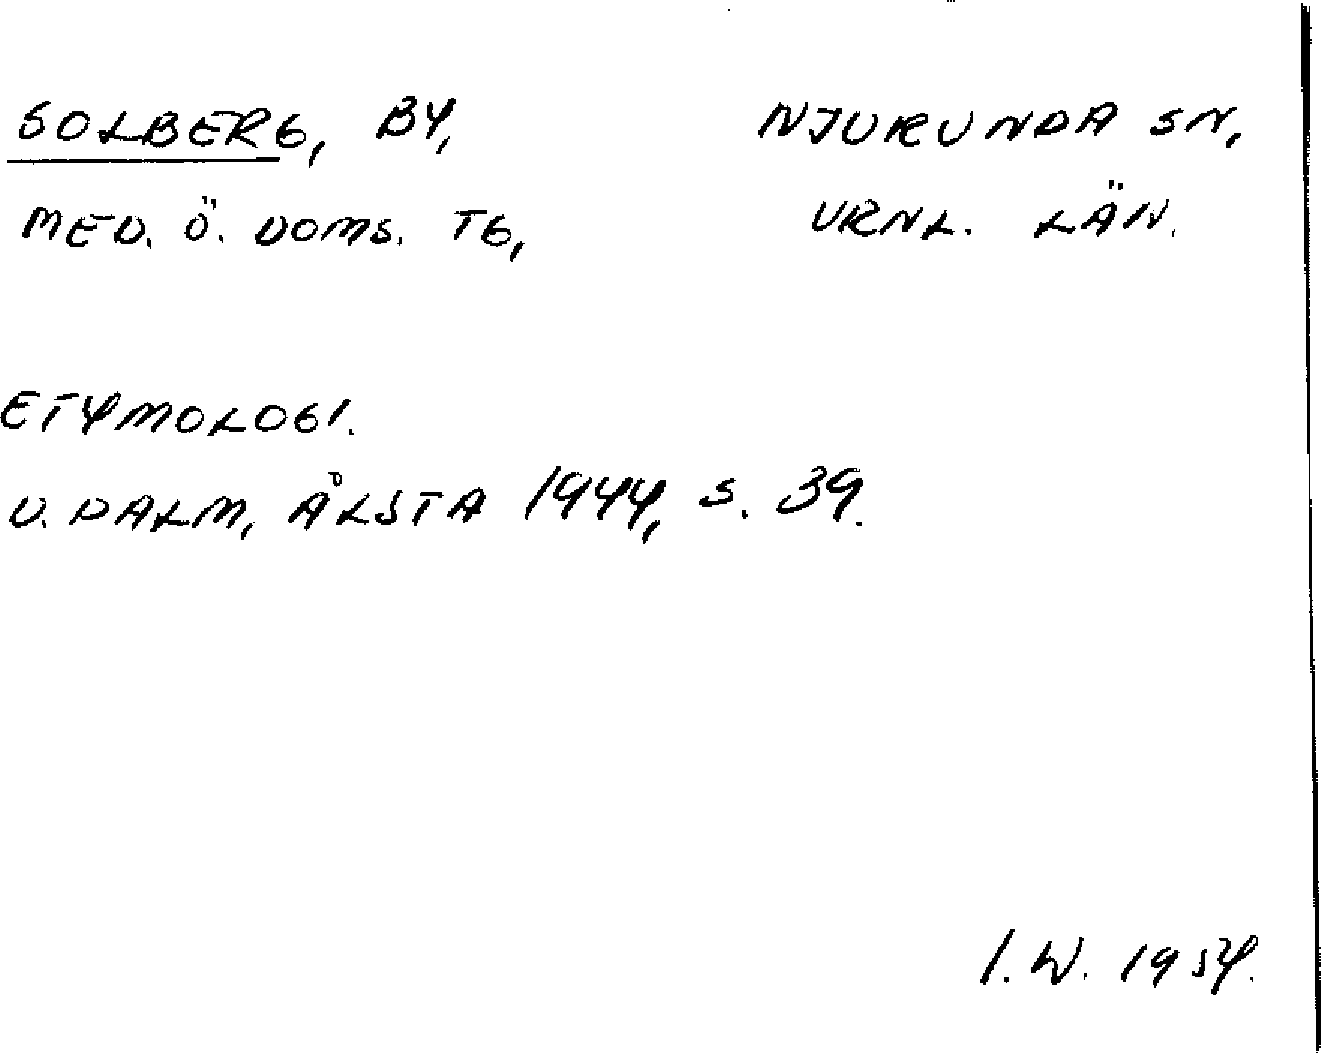 SOLBERG, BY, NJURUNDA SN,
MED. Ö. DOMS. TG, VRNL. LÄN.
ETYMOLOGI.
V. DALM, ÅLSTA 1944, S. 39.
I. W. 1954.